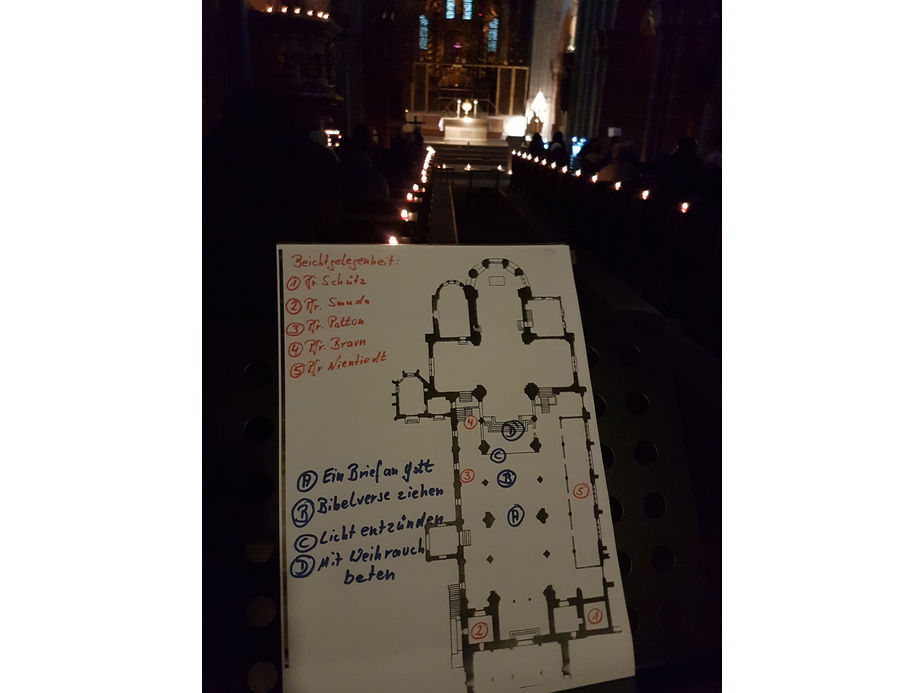 Beichtgelegenheit:
① Pfr. Schütz
② Pfr. Smuda
③ Pfr. Patton
④ Pfr. Braun
⑤ Pfr Nientiedt
Ⓐ Ein Brief an Gott
Ⓑ Bibelverse ziehen
Ⓒ Licht entzünden
Ⓓ Mit Weihrauch
beten
D
4
C
3
B
5
A
2
1